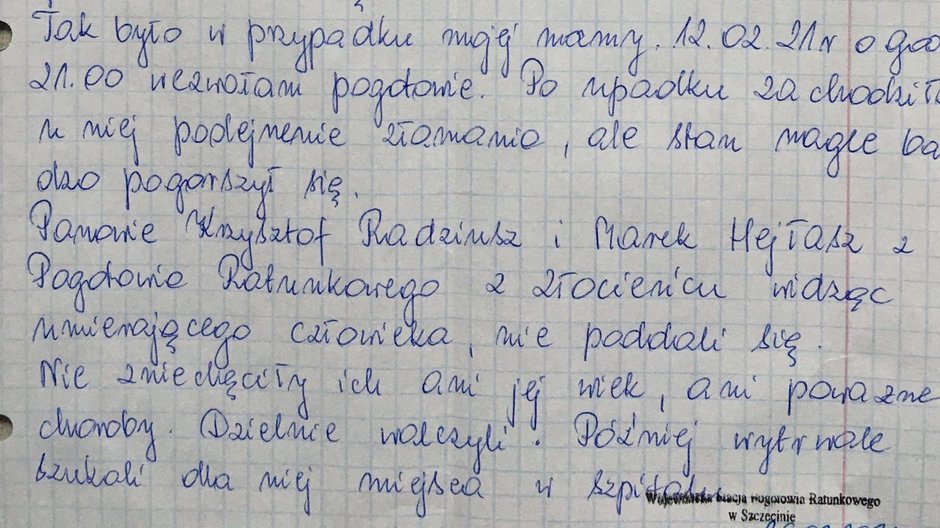 Tak było w przypadku mojej mamy. 12.02.21r o go
21.00 wezwałam pogotowie. Po upadku zachodziło
u niej podejrzenie złamania, ale stan nagle ba
dzo pogorszył się.
Panowie Krzysztof Radziusz i Marek Hejłasz z
Pogotowia Ratunkowego z Złocieńcu widząc
umierającego człowieka, nie poddali się.
Nie zniechęciły ich ani jej wiek, ani poważne
choroby. Dzielnie walczyli. Później wytrwale
szukali dla niej miejsca w szpitalu
Wojewódzka Stacja Pogotowia Ratunkowego
w Szczecinie